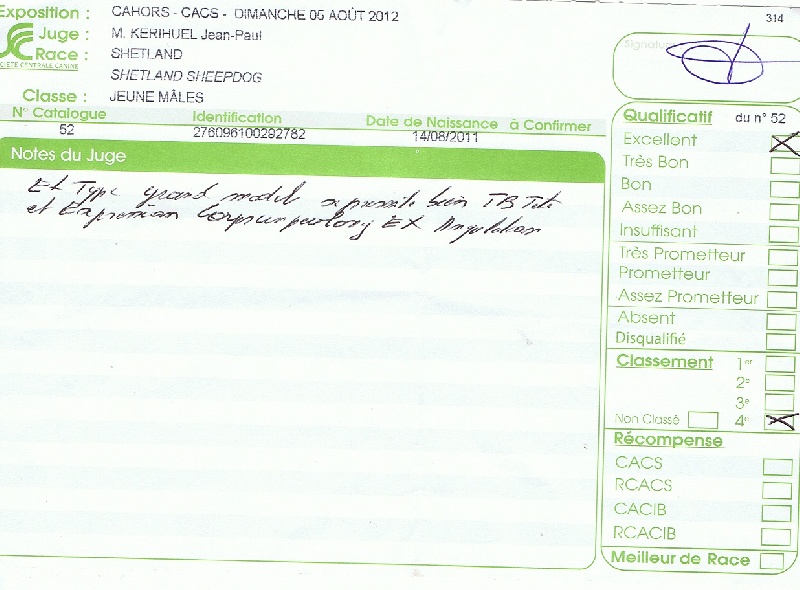 Exposition : CAHORS - CACS - DIMANCHE 05 AOÛT 2012
314
Juge : M. KERIHUEL Jean-Paul
Race : SHETLAND
SOCIÉTÉ CENTRALE CANINE
SHETLAND SHEEPDOG
Signature
Classe : JEUNE MÂLES
N° Catalogue Identification Date de Naissance à Confirmer
52 276096100292782 14/08/2011
Notes du Juge
Ex Type grand model bien TB Tete
et Expression EX Angulation
Qualificatif du n° 52
Excellent
Très Bon
Bon
Assez Bon
Insuffisant
Très Prometteur
Prometteur
Assez Prometteur
Absent
Disqualifié
Classement 1er
2e
3e
Non Classé 4e
Récompense
CACS
RCACS
CACIB
RCACIB
Meilleur de Race